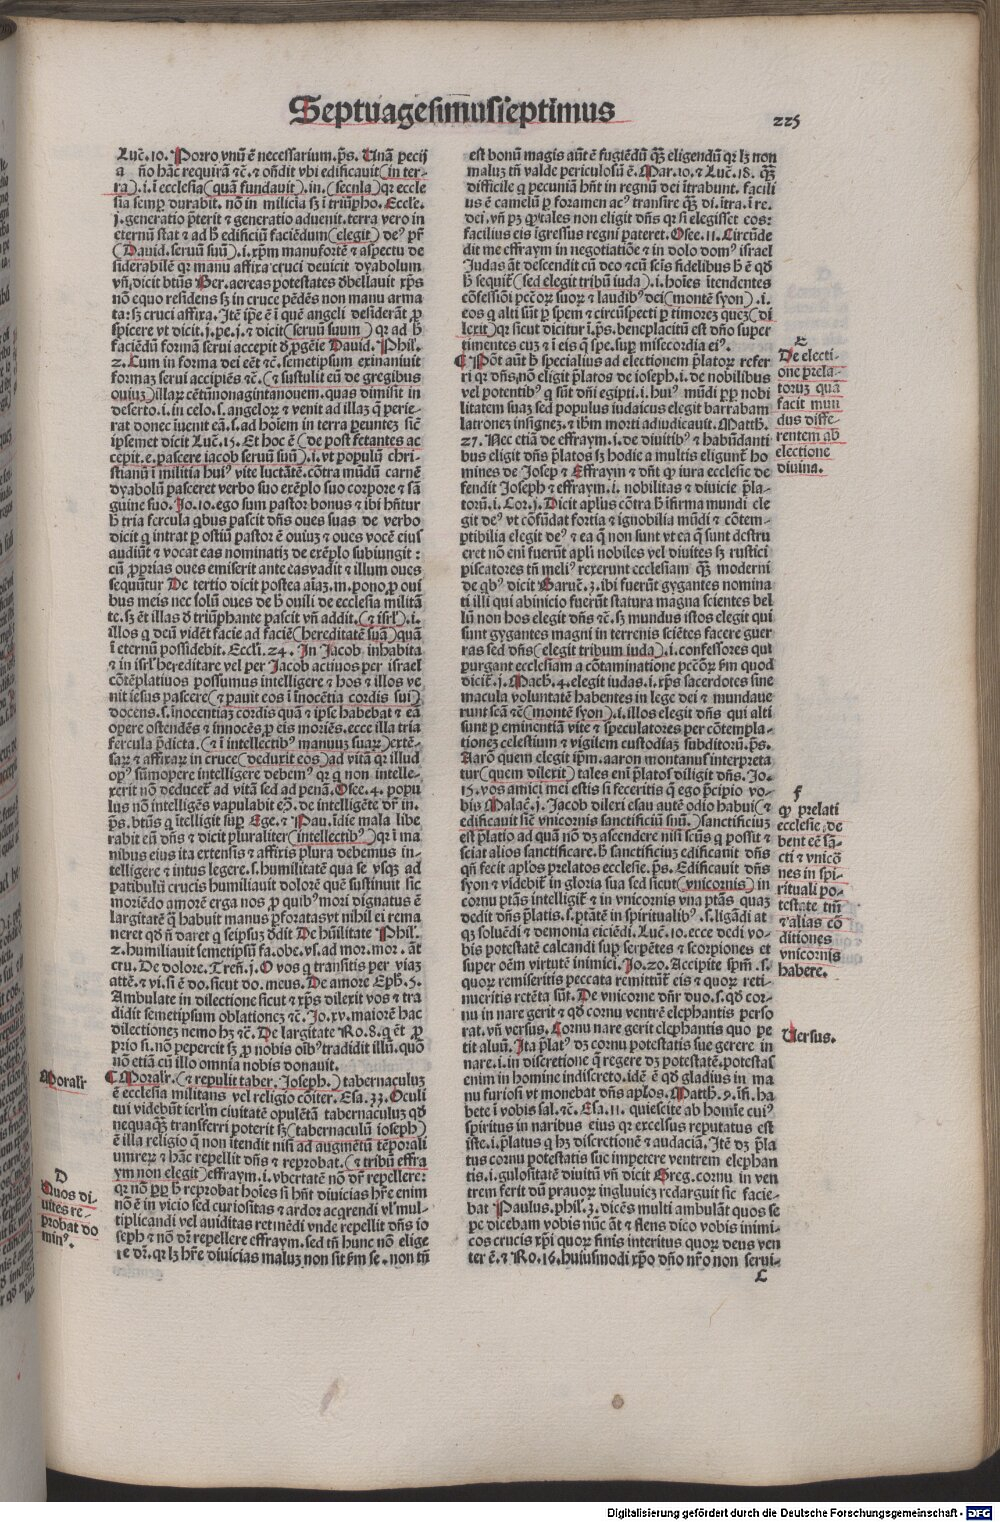 Septuagesimusseptimus
225
Luc̄.10. Porro vnū ē necessarium.p̄s. Unā pecij
a    n̄o hāc requirā ⁊c̄. ⁊ on̄dit vbi edificauit (in ter-
ra).i.ī ecclesia (quā fundauit).in.(secula) qr eccle
sia semꝑ durabit. nō in milicia sꝫ ī triūpho. Eccle.
j.generatio p̄terit ⁊ generatio aduenit.terra vero in
eternū stat ⁊ ad h̄ edificiū faciēdum (elegit) de⁹ pr̄
(Dauid.seruū suū).i.xp̄m manufortē ⁊ aspectu de
siderabilē qr manu affixa cruci deuicit dyabolum
vn̄.dicit btūs Ber.aereas potestates d̄bellauit xp̄s
nō equo residēs sꝫ in cruce pēdēs non manu arma
ta: sꝫ cruci affixa. Itē ip̄e ē ī quē angeli desiderāt ꝓ
spicere vt dicit.j.pe.j.⁊ dicit (seruū suum) qr ad h̄
faciēdū formā serui accepit d̄ ꝓgēie Dauid. Phil.
2.Cum in forma dei eēt ⁊c̄.semetipsum exinaniuit
formaꝫ serui accipiēs ⁊c̄.(⁊ sustulit eū de gregibus
ouiuꝫ) illaꝝ cētūnonagintanouem.quas dimisit in
deserto.i.in celo.s.angeloꝝ ⁊ venit ad illaꝫ q̄ perie-
rat donec īuenit eā.s.ad hoīem in terra ꝑeuntez sic̄
ipsemet dicit Luc̄.15. Et hoc ē (de post fetantes ac
cepit.e.pascere iacob seruū suū).i.vt populū chri-
stianū ī militia hui⁹ vite luctātē.cōtra mūdū carnē
dyabolū pasceret verbo suo exēplo suo corpore ⁊ sā
guine suo. Jo.10.ego sum pastor bonus ⁊ ibi hn̄tur
h̄ tria fercula qbus pascit dn̄s oues suas de verbo
dicit q intrat ꝑ ostiū pastor ē ouiuꝫ ⁊ oues vocē eius
audiūt ⁊ vocat eas nominatiꝫ de exēplo subiungit:
cū ꝓprias oues emiserit ante eas vadit ⁊ illum oues
sequūtur De tertio dicit postea aīaꝫ.m.pono ꝓ oui
bus meis nec solū oues de h̄ ouili de ecclesia militā
te.sꝫ ēt illas d̄ triūphante pascit vn̄ addit.(⁊ isrl̄).i.
illos q deū vidēt facie ad faciē (hereditatē suā) quā
ī eternū possidebit. Eccli.24. In Jacob inhabita
⁊ in isrl̄ hereditare vel per Jacob actiuos per israel
cōtēplatiuos possumus intelligere ⁊ hos ⁊ illos ve
nit iesus pascere (⁊ pauit eos ī inocētia cordis sui)
docens.s.inocentiaꝫ cordis quā ⁊ ip̄se habebat ⁊ eā
opere ostendēs ⁊ innocēs ꝓ eis moriēs.ecce illa tria
fercula p̄dicta.(⁊ ī intellectib⁹ manuuꝫ suaꝝ) extē-
saꝝ ⁊ affixaꝝ in cruce (deduxit eos) ad vitā qr illud
op⁹ sūmopere intelligere debem⁹ qr q non intelle-
xerit nō deducet̄ ad vitā sed ad penā. Osee.4. popu
lus nō intelligēs vapulabit eō.de intelligēte dr̄ in.
p̄s.btūs q ītelligit suꝑ Ege.⁊ Pau.īdie mala libe
rabit eū dn̄s ⁊ dicit pluraliter (intellectib⁹) qr ī ma
nibus eius ita extensis ⁊ affixis plura debemus in-
telligere ⁊ intus legere.s.humilitatē qua se vsqꝫ ad
patibulū crucis humiliauit dolorē quē sustinuit sic
moriēdo amorē erga nos ꝓ quib⁹ mori dignatus ē
largitatē q̄ habuit manus ꝑforatas vt nihil ei rema
neret qd̄ n̄ daret q seipsuꝫ d̄dit De hūilitate Phil.
2.humiliauit semetipsū fa.obe.vs.ad mor.mor.āt
cru. De dolore. Tren̄.j. O vos q transitis per viaꝫ
attē.⁊ vi.si ē do.sicut do.meus. De amore Eph̄.5.
Ambulate in dilectione sicut ⁊ xp̄s dilexit vos ⁊ tra
didit semetipsum oblationeꝫ ⁊c̄. Jo.xv.maiorē hac
dilectioneꝫ nemo hꝫ ⁊c̄. De largitate Ro.8.q ēt ꝓ
prio fi.nō pepercit sꝫ ꝓ nobis oīb⁹ tradidit illū.quō
nō etiā cū illo omnia nobis donauit.
Moralr̄
¶ Moralr̄.(⁊ repulit taber. Joseph.) tabernaculuꝫ
ē ecclesia militans vel religio cōiter. Esa.33. Oculi
tui videbūt ierl̄m ciuitatē opulētā tabernaculuꝫ qd̄
nequaqꝫ transferri poterit sꝫ (tabernaculū ioseph)
ē illa religio q̄ non itendit nisi ad augmētū tēporali
um reꝝ ⁊ hāc repellit dn̄s ⁊ reprobat.(⁊ tribū effra
ym non elegit) effraym.i.vbertatē nō dr̄ repellere:
qr nō ꝓꝑ h̄ reprobat hoīes si hn̄t diuicias hr̄e enim
nō ē in vicio sed curiositas ⁊ ardor acq̄rendi vl̓ mul-
tiplicandi vel auiditas retinēdi vnde repellit dn̄s io
seph ⁊ nō dr̄ repellere effraym.sed tn̄ hunc nō elige
re dr̄.qr lꝫ hr̄e diuicias maluꝫ non sit km̄ se.non tn̄
D
Quos di-
uites re-
probat do
min⁹.
est bonū magis aūt ē fugiēdū qꝫ eligendū qr lꝫ non
maluꝫ tn̄ valde periculosū ē. Mar.10.⁊ Luc̄.18. qꝫ
difficile q pecuniā hn̄t in regnū dei ītrabunt. facili
us ē camelū ꝑ foramen ac⁹ transire qꝫ di.ītra.ī re.
dei.vn̄ pꝫ ꝙ tales non eligit dn̄s qr si elegisset eos:
facilius eis īgressus regni pateret. Osee.11. Circūde
dit me effraym in negotiatiōe ⁊ in dolo dom⁹ israel
Judas āt descendit cū deo ⁊ cū scīs fidelibus h̄ ē qd̄
h̄ sequit̄ (sed elegit tribū iuda).i.hoīes itendentes
cōfessiōi pctōꝝ suoꝝ ⁊ laudib⁹ dei (montē syon).i.
eos q alti sūt ꝑ spem ⁊ circūspecti ꝑ timoreꝫ quez (di
lexit) qr sicut dicitur ī.p̄s.beneplacitū est dn̄o super
timentes euꝫ ⁊ ī eis q̄ spe.suꝑ misecordia ei⁹.
¶ Pōt aūt h̄ specialius ad electionem p̄latoꝝ refer
ri qr dn̄s nō eligit p̄latos de ioseph.i.de nobilibus
vel potentib⁹ q sūt dn̄i egipti.i.hui⁹ mūdi ꝓꝑ nobi
litatem suaꝫ sed populus iudaicus elegit barrabam
latroneꝫ insigneꝫ.⁊ ih̄m morti adiudicauit. Matth̄.
27. Nec etiā de effraym.i.de diuitib⁹ ⁊ habūdanti
bus eligit dn̄s p̄latos sꝫ hodie a multis eligunt̄ ho
mines de Josep ⁊ Effraym ⁊ dn̄t q̄ iura ecclesie de
fendit Joseph ⁊ effraym.i. nobilitas ⁊ diuicie p̄la-
torū.i. Cor.j. Dicit apl̄us cōtra h̄ īfirma mundi ele
git de⁹ vt cōfūdat fortia ⁊ ignobilia mūdi ⁊ cōtem-
ptibilia elegit de⁹ ⁊ ea q̄ non sunt vt ea q̄ sunt destru
eret nō eni fuerūt apl̄i nobiles vel diuites sꝫ rustici
piscatores tn̄ meli⁹ rexerunt ecclesiam qꝫ moderni
de qb⁹ dicit Baruc̄.3.ibi fuerūt gygantes nomina
ti illi qui abinicio fuerūt statura magna scientes bel
lū non hos elegit dn̄s ⁊c̄.sꝫ mundus istos elegit qui
sunt gygantes magni in terrenis sciētes facere guer
ras sed dn̄s (elegit tribum iuda).i.confessores qui
purgant ecclesiam a cōtaminatione pctōꝝ km̄ quod
dicit̄.j. Mach̄.4.elegit iudas.i.xp̄s sacerdotes sine
macula voluntatē habentes in lege dei ⁊ mundaue
runt scā ⁊c̄ (montē syon).i.illos elegit dn̄s qui alti
sunt ꝑ eminentiā vite ⁊ speculatores per cōtempla-
tioneꝫ celestium ⁊ vigilem custodiaꝫ subditorū.p̄s.
Aarō quem elegit ip̄m.aaron montanus interpreta
tur (quem dilexit) tales eni p̄latos diligit dn̄s. Jo.
15.vos amici mei estis si feceritis q̄ ego p̄cipio vo-
bis Malac̄.j. Jacob dilexi esau autē odio habui (⁊
edificauit sic̄ vnicornis sanctificiū suū). sanctificiuꝫ
est p̄latio ad quā nō dꝫ ascendere nisi scūs q possit ⁊
sciat alios sanctificare.h̄ sanctificiuꝫ edificauit dn̄s
qn̄ fecit apl̄os prelatos ecclesie.p̄s. Edificauit dn̄s
syon ⁊ videbit̄ in gloria sua sed sicut (vnicornis) in
cornu ptās intelligit̄ ⁊ in vnicornis vna ptās quaꝫ
dedit dn̄s p̄latis.s.ptātē in spiritualib⁹.s.ligādi at
qꝫ soluēdi ⁊ demonia eiciēdi. Luc̄.10.ecce dedi vo-
bis potestatē calcandi suꝑ serpētes ⁊ scorpiones et
super oēm virtutē inimici. Jo.20. Accipite spm̄.s.
quoꝝ remiseritis peccata remittūt̄ eis ⁊ quoꝝ reti-
nueritis retēta sūt. De vnicorne dn̄r duo.s.qd̄ cor-
nu in nare gerit ⁊ qd̄ cornu ventrē elephantis perfo
rat.vn̄ versus. Cornu nare gerit elephantis quo pe
tit aluū. Ita p̄lat⁹ dꝫ cornu potestatis sue gerere in
nare.i.in discretione q̄ regere dꝫ potestatē.potestas
enim in homine indiscreto.idē ē qd̄ gladius in ma
nu furiosi vt monebat dn̄s apl̄os. Matth̄.9.in̄.ha
bete ī vobis sal.⁊c̄. Esa.11. quiescite ab homīe cui⁹
spiritus in naribus eius qr excelsus reputatus est
iste.i.p̄latus q hꝫ discretionē ⁊ audaciā. Itē dꝫ p̄la
tus cornu potestatis sue impetere ventrem elephan
tis.i.gulositatē diuitū vn̄ dicit Greg.cornu in ven
trem ferit dū prauoꝝ ingluuiez redarguit sic facie-
bat Paulus.phil.3.dicēs multi ambulāt quos se
pe dicebam vobis nūc āt ⁊ flens dico vobis inimi-
cos crucis xp̄i quoꝝ finis interitus quoꝝ deus ven
ter ē.⁊ Ro.16.huiusmodi xp̄o dn̄o nr̄o non serui-
E
De electi-
one prela-
toruꝫ quā
facit mun
dus diffe-
rentem ab
electione
diuina.
f
ꝙ prelati
ecclesie de
bent eē sā-
cti ⁊ vnicō
nes in spi-
rituali po-
testate tn̄
⁊ alias cō
ditiones
vnicornis
habere.
Versus.
C
Digitalisierung gefördert durch die Deutsche Forschungsgemeinschaft - DFG